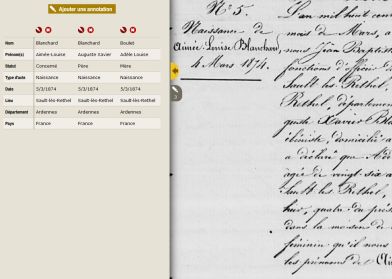 Ajouter une annotation
Nom Blanchard Blanchard Boulet
Prénom(s) Aimée-Louise Auguste Xavier Adèle Louise
Statut Concerné Père Mère
Type d'acte Naissance Naissance Naissance
Date 5/3/1874 5/3/1874 5/3/1874
Lieu Sault-lès-Rethel Sault-lès-Rethel Sault-lès-Rethel
Département Ardennes Ardennes Ardennes
Pays France France France
3
N° 5.
Naissance de
Aimée-Louise Blanchard
4 Mars 1874.
L'an mil huit cent
mois de Mars, à
nous Jean Baptiste
fonctions d'officier
Sault lès Rethel,
Rethel, département
Xavier
ébéniste, domicilié à
a déclaré que
âgée de vingt six a
Sault lès Rethel,
quatre du
dans la maison de
féminin qu'il nous
les prénoms de